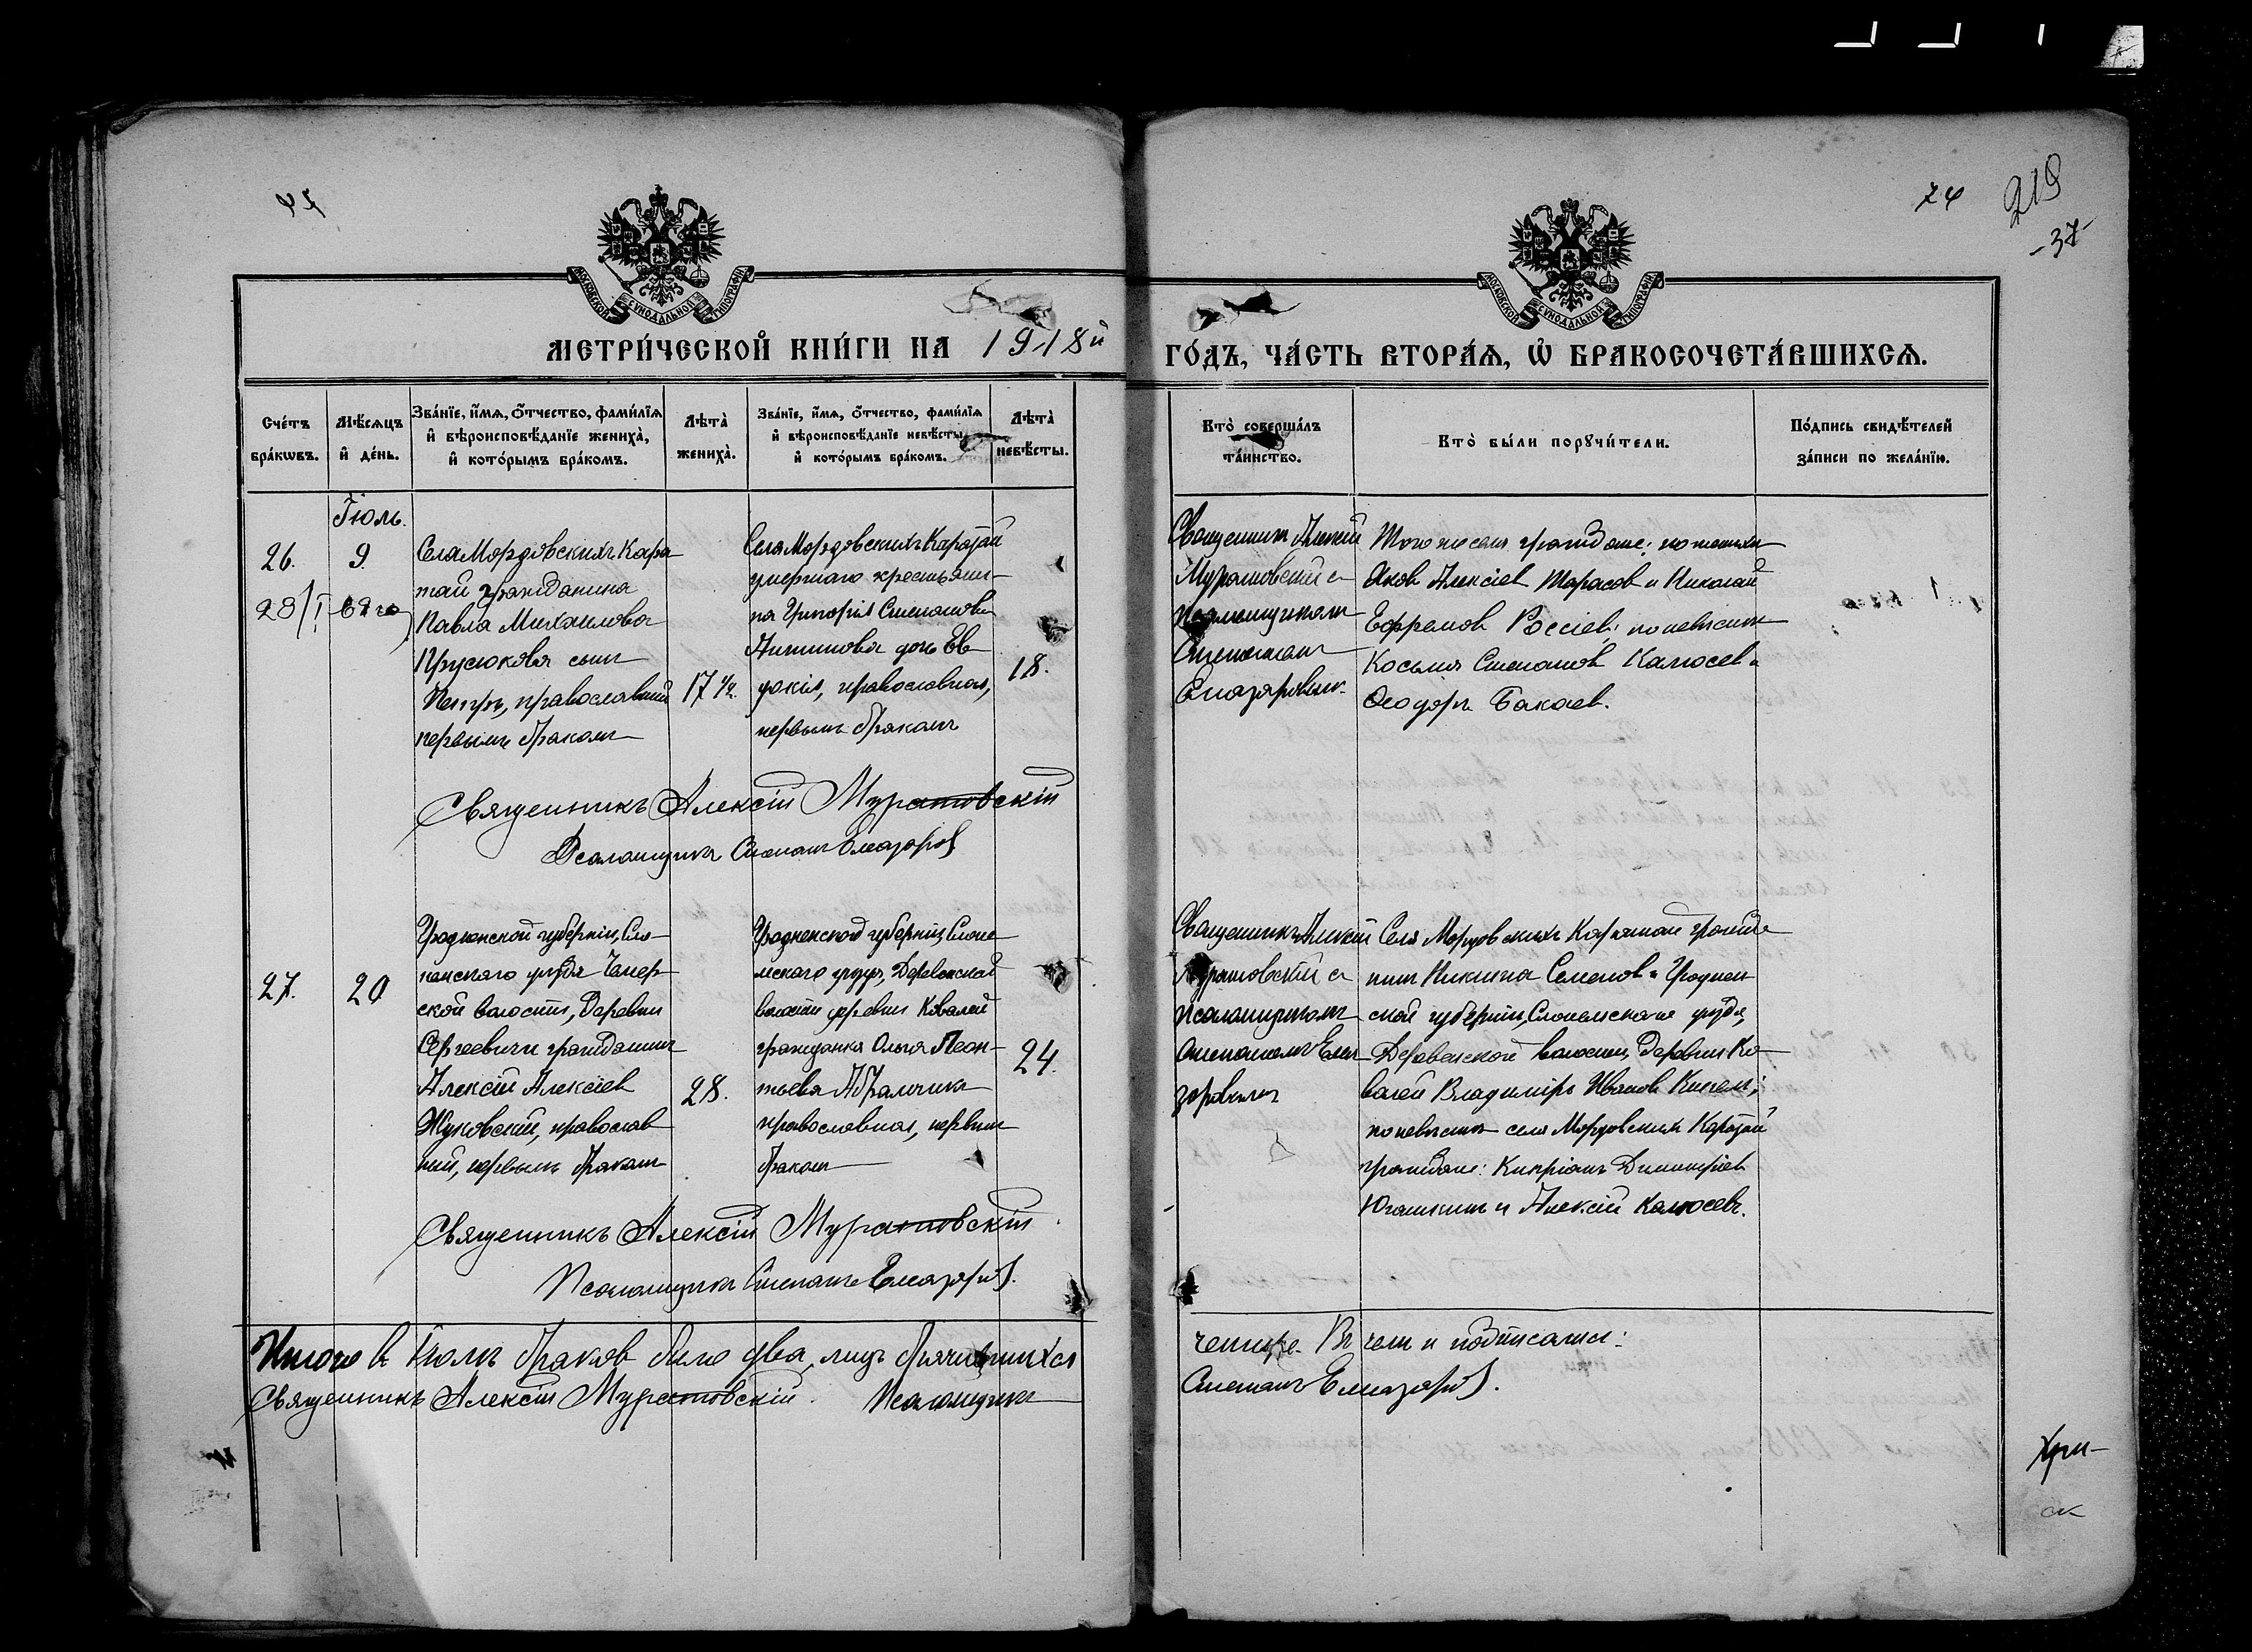 74
219
-37-
МОСКОВСКОЙ СѴНОДАЛЬНОЙ ТИПОГРАФІИ
МОСКОВСКОЙ СѴНОДАЛЬНОЙ ТИПОГРАФІИ
МЕТРИ́ЧЕСКОЙ КНИ́ГИ НА 1918й
ГО́ДЪ, ЧА́СТЬ ВТОРА́Ѧ, Ѡ҆ БРАКОСОЧЕТА́ВШИХСѦ.
Сче́тъ
бра́кѡвъ.
Мѣ́сѧцъ
и҆ де́нь.
Зва́нїе, и҆́мѧ, ѻ҆́тчество, фами́лїѧ
и҆ вѣроисповѣ́данїе жениха̀,
и҆ кото́рымъ бра́комъ.
Лѣта̀
жениха̀.
Зва́нїе, и҆́мѧ, ѻ҆́тчество, фами́лїѧ
и҆ вѣроисповѣ́данїе невѣ́сты,
и҆ кото́рымъ бра́комъ.
Лѣта̀
невѣ́сты.
Кто̀ соверша́лъ
та́инство.
Кто̀ бы́ли порꙋчи́тели.
По́дпись свидѣ́телей
за́писи по жела́нїю.
Іюль.
26.
28/I-69 го
9
Села Мордовскихъ Кара
тай гражданина
Павла Михаилова
сынъ
Петръ, православный
первымъ бракомъ
17 ½
Села Мордовскихъ Каратай
умершаго крестьяни-
на Григорія Степанова
дочь Ев
докія, православная,
первымъ бракомъ
18.
Священникъ Алексій
Муратовскій съ
Псаломщикомъ
Степаномъ
Елеазаровымъ
Того же села граждане: по женихѣ
Яковъ Алексіевъ Тарасовъ и Николай
Ефремовъ по невѣстѣ
Косьма Степановъ Калюсевъ и
Ѳеодоръ Бакаевъ.
Священникъ Алексій Муратовскій
Псаломщикъ Степанъ Елеазаровъ
27.
20
Гродненской губерніи, Сло-
нимскаго уѣзда
ской волости, Деревни
Сергеевичи гражданинъ
Алексій Алексіевъ
Жуковскій, православ
ный, первымъ бракомъ
28.
Гродненской губерніи, Слони-
мскаго уѣзда,
волости деревни Ковалей
гражданка Ольга Леон-
тьева Абрамчикъ
православная, первымъ
бракомъ
24.
Священникъ Алексій
Муратовскій съ
псаломщикомъ
Степаномъ Елеа
заровымъ
Села Мордовскихъ Каратай гражда
нинъ Никита Семеновъ и Гроднен
ской губерніи, Слонимскаго уѣзда,
волости, Деревни Ко-
валей Владиміръ Ивановъ
по невѣстѣ села Мордовскихъ Каратай
граждане: Кипріанъ Димитріевъ
Югашкинъ и Алексій Калюсевъ.
Священникъ Алексій Муратовскій
Псаломщикъ Степанъ Елеазаровъ.
Итого въ Іюлѣ браковъ было два, лицъ брачившихся
четыре. Въ чемъ и подписались:
Священникъ Алексій Муратовскій. Псаломщикъ
Степанъ Елеазаровъ.
Хри-